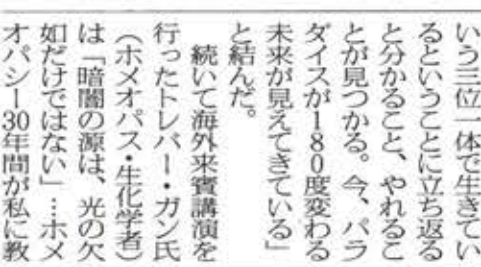 いう三位一体で生きてい
るということに立ち返る
と分かること、やれるこ
とが見つかる。今、パラ
ダイスが180度変わる
未来が見えてきている」
と結んだ。
　続いて海外来賓講演を
行ったトレバー・ガン氏
（ホメオパス・生化学者）
は「暗闇の源は、光の欠
如だけではない」…ホメ
オパシー30年間が私に教